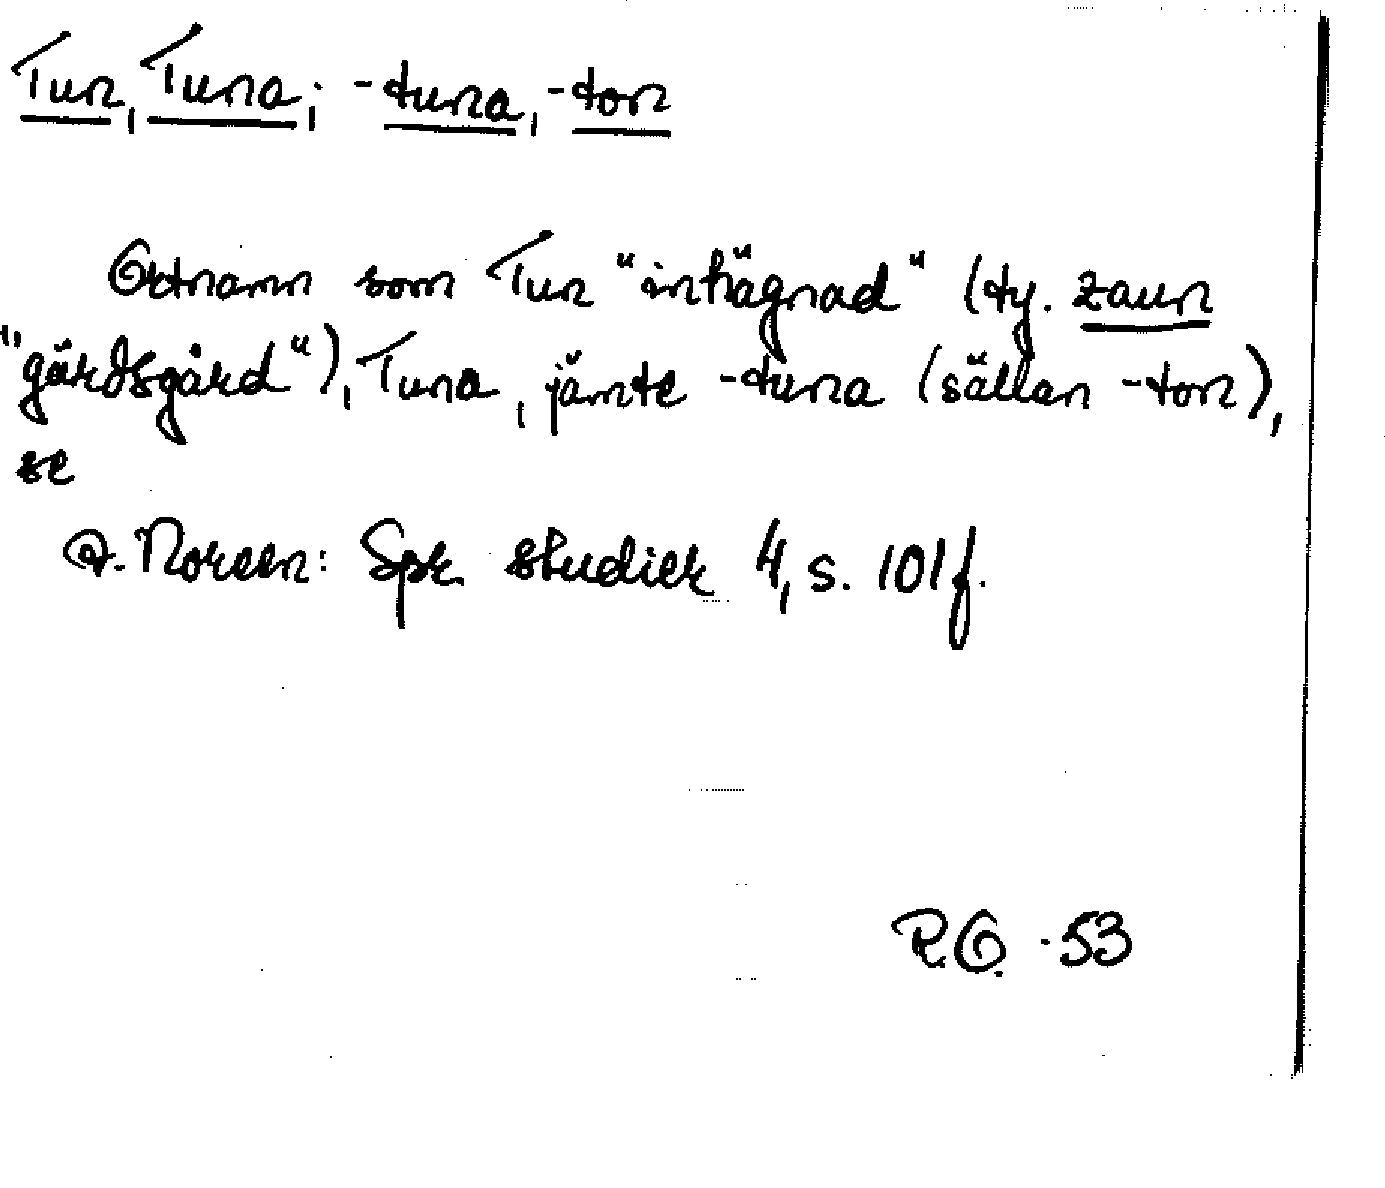 Tun, Tuna; -tuna, -ton
Ortnamn som Tun "inhägnad" (ty. zaun
"gärdsgård"), Tuna, jämte -tuna (sällan -ton),
se
A. Noreen: Spr. studier 4, s. 101 f.
R.O. -53